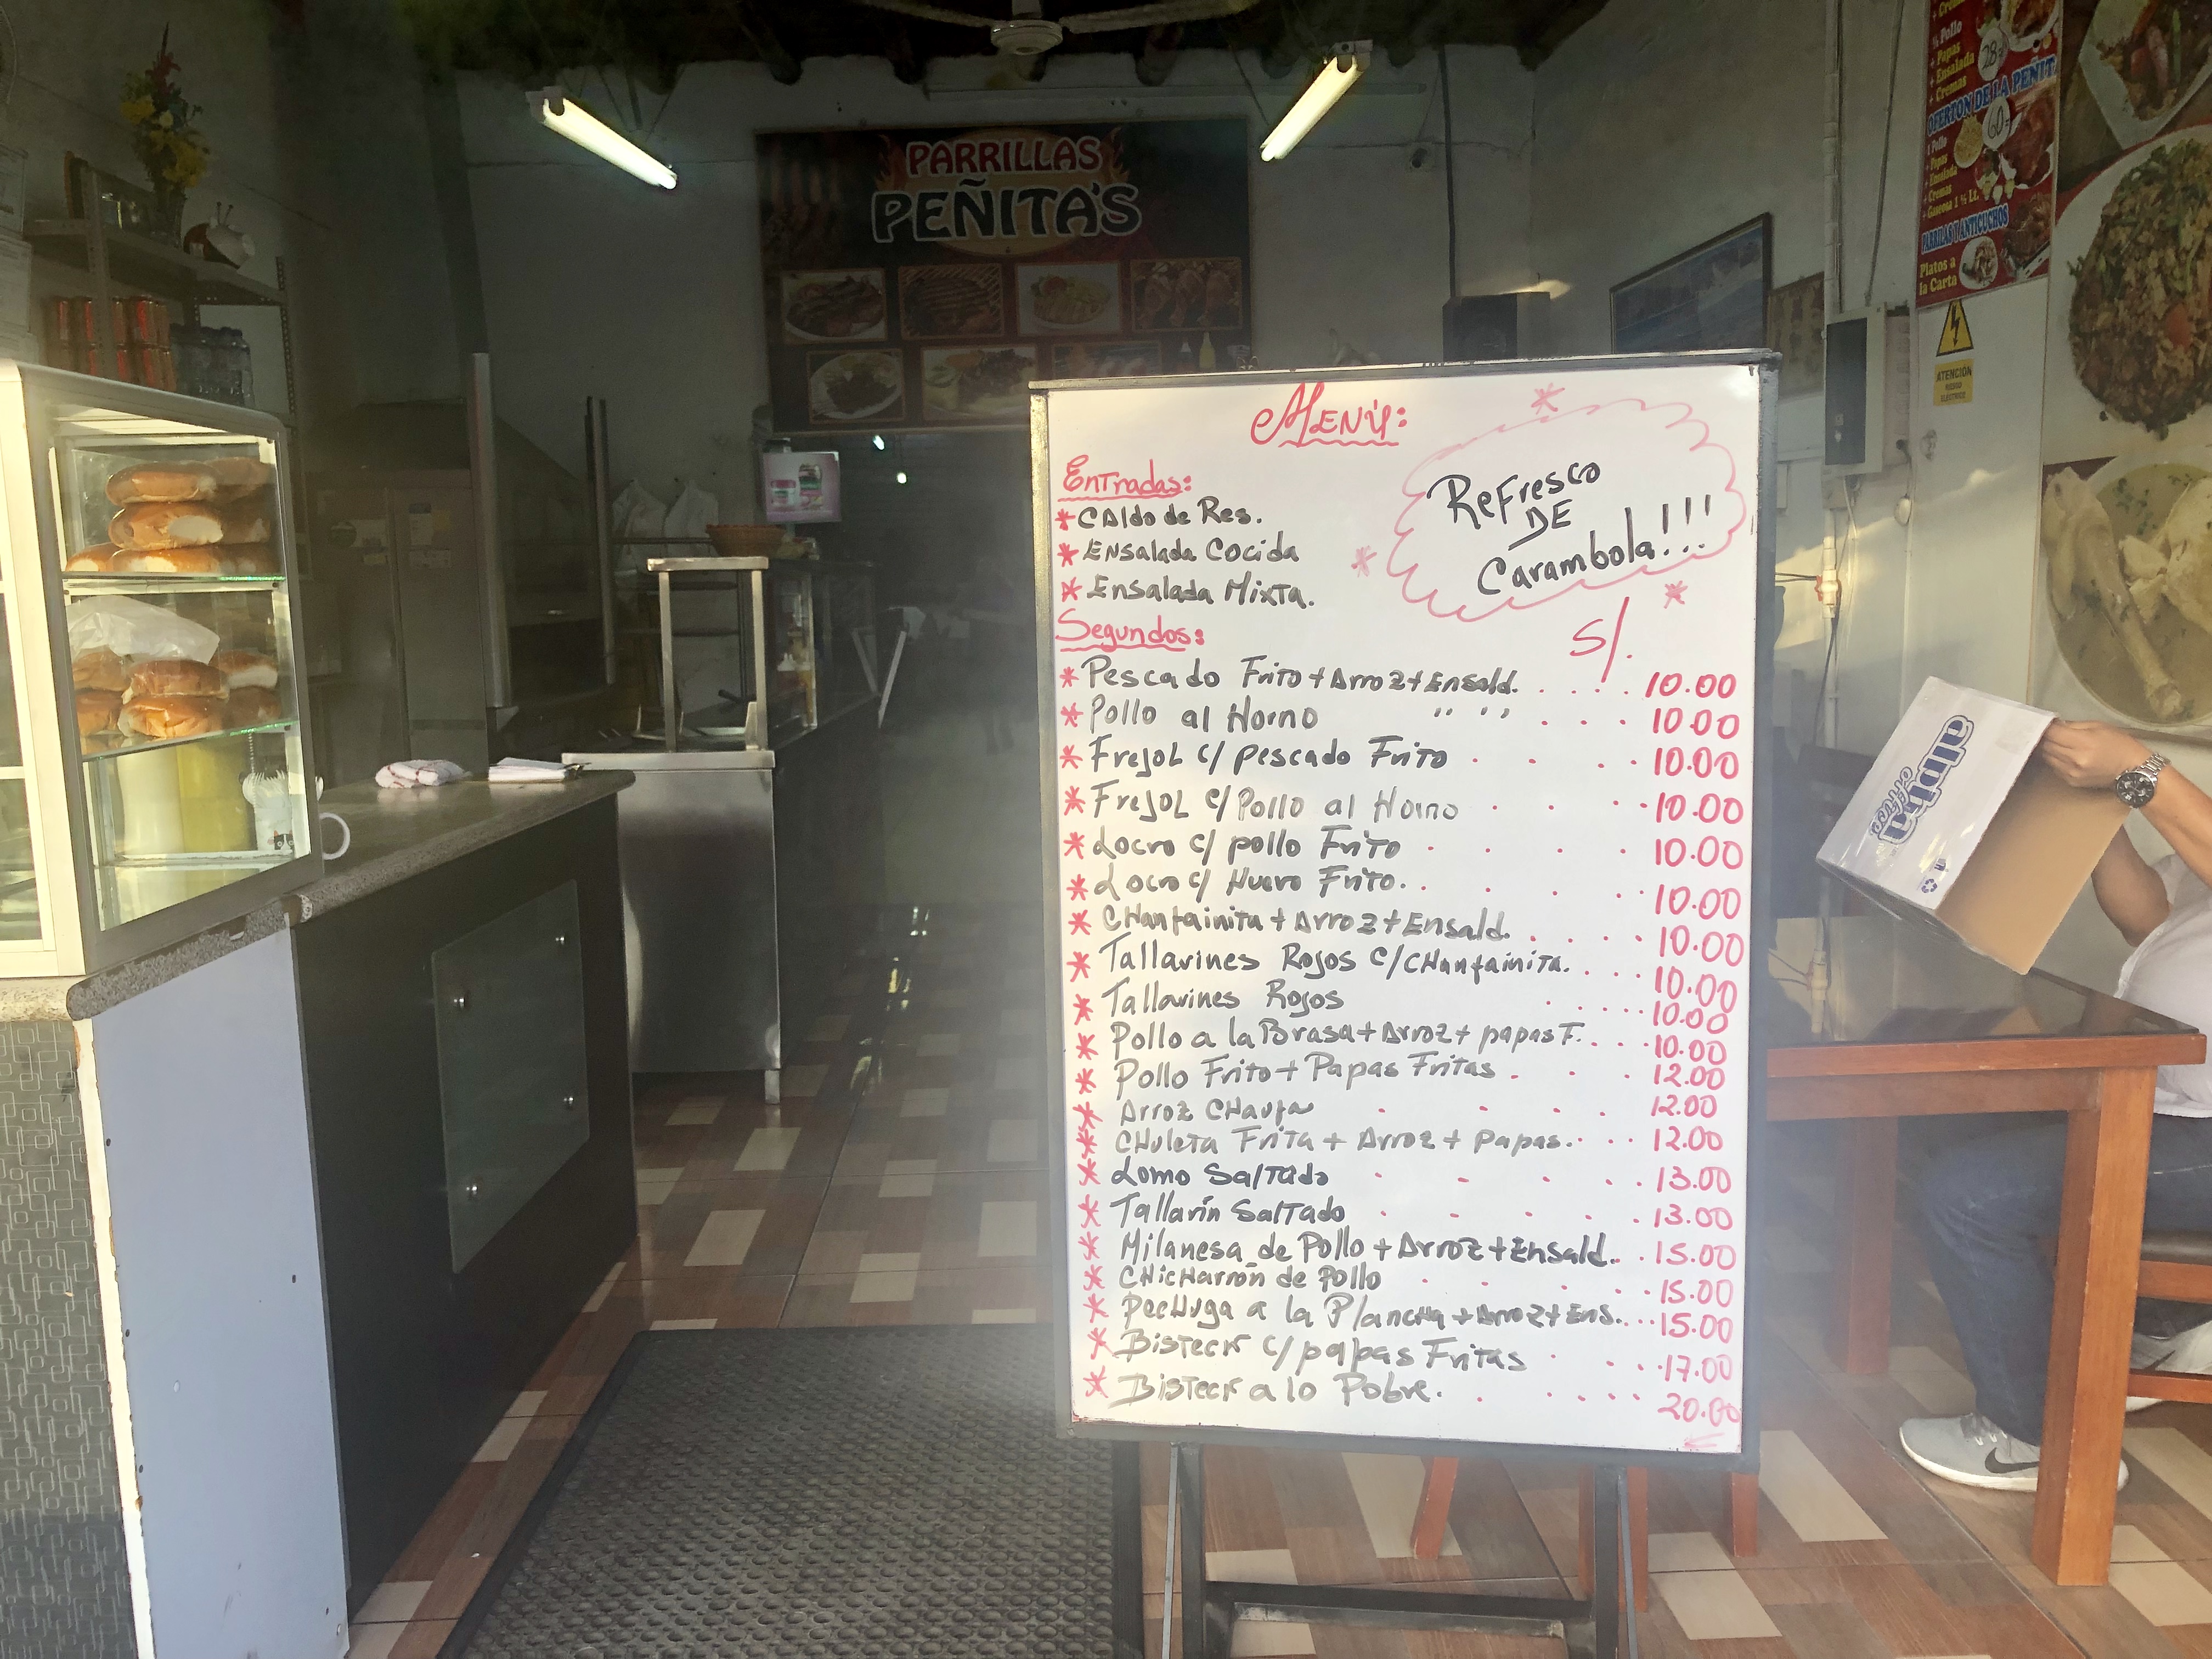 PARRILLAS
PEÑITA'S
MENÚ:
Refresco
DE
Carambola!!!
Entradas:
* Caldo de Res.
* Ensalada Cocida
* Ensalada Mixta.
Segundos:
S/.
* Pescado Frito + Arroz + Ensald. . . . . 10.00
* Pollo al Horno " " . . . . 10.00
* Frejol c/ pescado Frito . . . . 10.00
* Frejol c/ Pollo al Horno . . . . 10.00
* Locro c/ pollo Frito . . . . 10.00
* Locro c/ Huevo Frito. . . . . 10.00
* CHanfainita + Arroz + Ensald. . . . . 10.00
* Tallarines Rojos c/ CHanfainita. . . . . 10.00
* Tallarines Rojos . . . . 10.00
* Pollo a la Brasa + Arroz + papas F. . . . . 10.00
* Pollo Frito + Papas Fritas . . . . 12.00
* Arroz CHaufa . . . . 12.00
* CHuleta Frita + Arroz + Papas. . . . 12.00
* Lomo Saltado . . . . . 13.00
* Tallarín Saltado . . . . . 13.00
* Milanesa de Pollo + Arroz + Ensald. . . 15.00
* CHicHarrón de Pollo . . . . . 15.00
* PecHuga a la PlancHa + Arroz + Ens. . . . 15.00
* BistecK c/ papas Fritas . . . . 17.00
* BistecK a lo Pobre. . . . . . 20.00
Pollo
+ Papas
+ Ensalada
+ Cremas
28
OFERTON DE LA PEÑIT
60
1 Pollo
+ Papas
+ Ensalada
+ Cremas
+ Gaseosa 1 ½ Lt.
PARRILAS Y ANTICUCHOS
Platos a
la Carta
ATENCIÓN
RIESGO
ELÉCTRICO
alpina